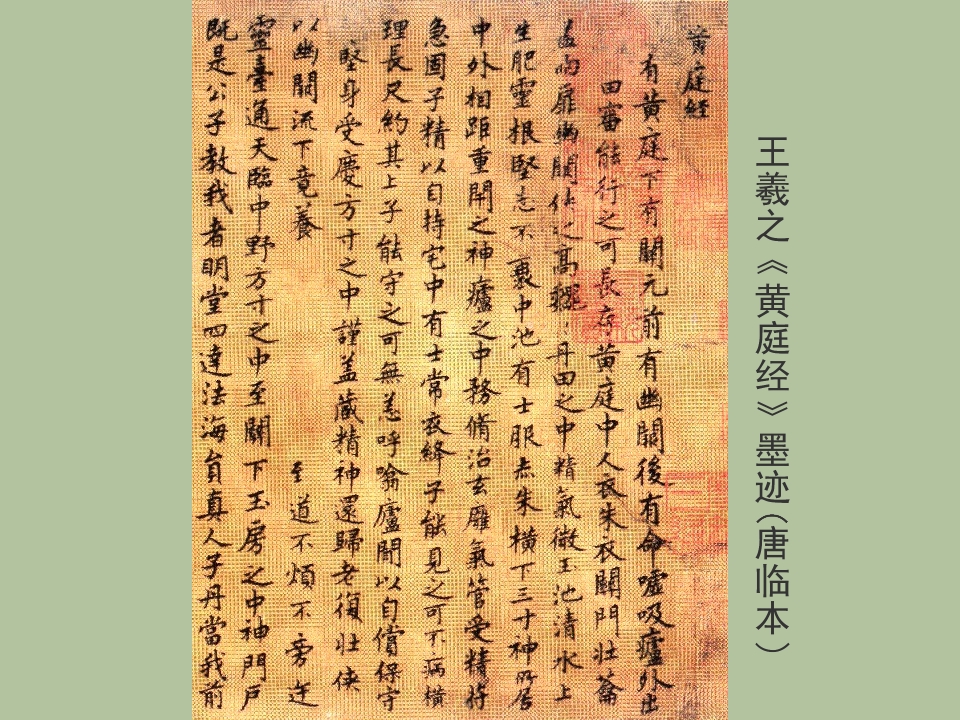 王羲之《黄庭经》墨迹(唐临本)
黄庭経
有黄庭下有關元前有幽闕後有命嘘吸廬外出
田審能行之可長存黄庭中人衣朱衣關門壯籥
盖兩扉幽闕侠之高巍〻丹田之中精氣微玉池清水上
生肥靈根堅志不衰中池有士服赤朱橫下三寸神所居
中外相距重閇之神廬之中務脩治玄膺氣管受精符
急固子精以自持宅中有士常衣絳子能見之可不病橫
理長尺約其上子能守之可無恙呼噏廬間以自償保守
堅身受慶方寸之中謹盖藏精神還歸老復壯侠
以幽闕流下竟養 至道不煩不旁迕
靈臺通天臨中野方寸之中至關下玉房之中神門戶
既是公子教我者明堂四達法海員真人子丹當我前